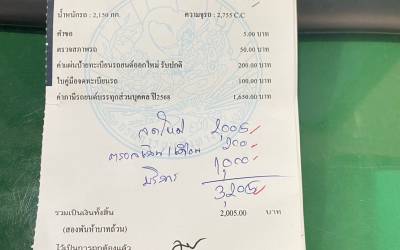 น้ำหนักรถ : 2,150 กก. ความจุรถ : 2,755 C.C
คำขอ 5.00 บาท
ตรวจสภาพรถ 50.00 บาท
ค่าแผ่นป้ายทะเบียนรถยนต์ออกใหม่ รับปกติ 200.00 บาท
ใบคู่มือจดทะเบียนรถ 100.00 บาท
ค่าภาษีรถยนต์บรรทุกส่วนบุคคล ปี2568 1,650.00 บาท
จดใหม่ 2,005
200
บริการ 1,000
3,205
รวมเป็นเงินทั้งสิ้น 2,005.00 บาท
(สองพันห้าบาทถ้วน)
ไว้เป็นการถูกต้องแล้ว